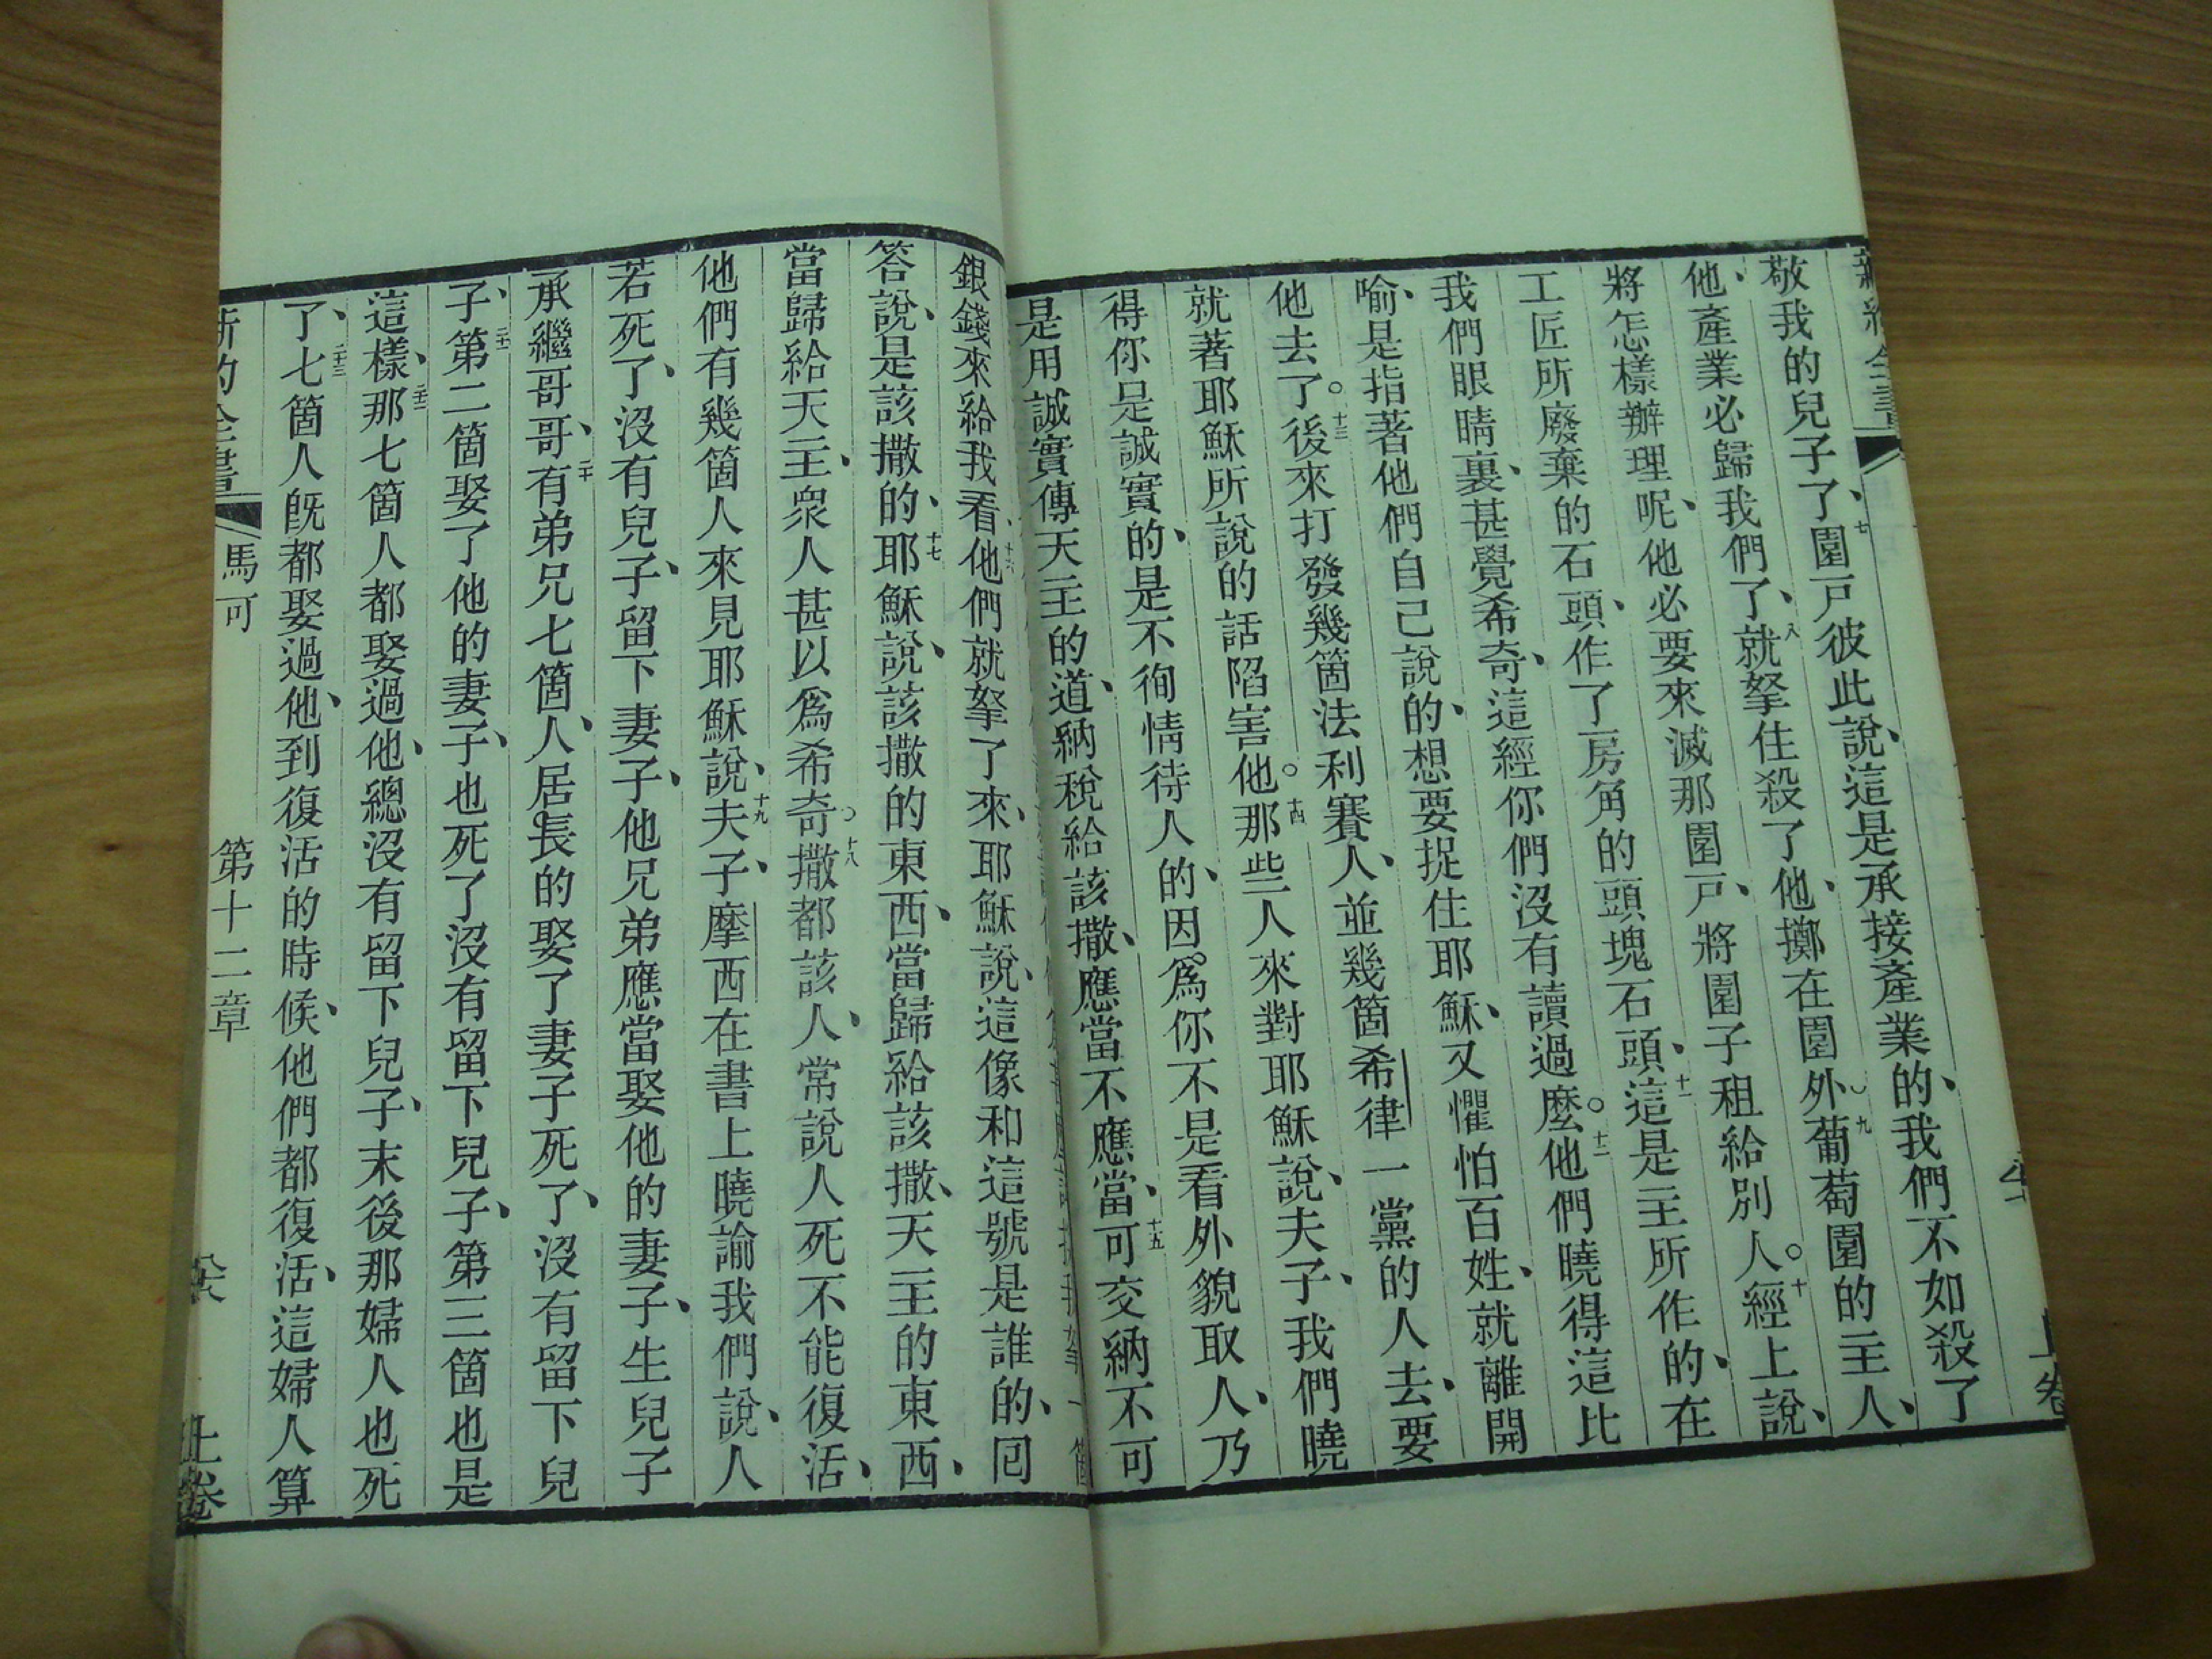 敬我的兒子了、七園戶彼此說、這是承接產業的、我們不如殺了
他、產業必歸我們了、八就拏住殺了他、擲在園外。九葡萄園的主人、
將怎樣辦理呢、他必要來滅那園戶、將園子租給別人。十經上說、
工匠所廢棄的石頭、作了房角的頭塊石頭、十一這是主所作的、在
我們眼睛裏、甚覺希奇、這經你們沒有讀過麼。十二他們曉得這比
喻、是指著他們自己說的、想要捉住耶穌、又懼怕百姓、就離開
他去了。十三後來打發幾箇法利賽人、並幾箇希律一黨的人去、要
就著耶穌所說的話陷害他。十四那些人來對耶穌說、夫子、我們曉
得你是誠實的、是不徇情待人的、因爲你不是看外貌取人、乃
是用誠實傳天主的道、納稅給該撒、應當不應當、十五可交納不可
銀錢來給我看、十六他們就拏了來、耶穌說、這像和這號是誰的、囘
答說、是該撒的、十七耶穌說、該撒的東西、當歸給該撒、天主的東西、
當歸給天主、衆人甚以爲希奇。十八撒都該人、常說人死不能復活、
他們有幾箇人來見耶穌說、十九夫子、摩西在書上曉諭我們說、人
若死了、沒有兒子、留下妻子、他兄弟應當娶他的妻子、生兒子
承繼哥哥、二十有弟兄七箇人、居長的娶了妻子死了、沒有留下兒
子、二十一第二箇娶了他的妻子、也死了沒有留下兒子、第三箇也是
這樣、二十二那七箇人都娶過他、總沒有留下兒子、末後那婦人也死
了、二十三七箇人旣都娶過他、到復活的時候、他們都復活、這婦人算
新約全書 馬可 第十二章 上卷